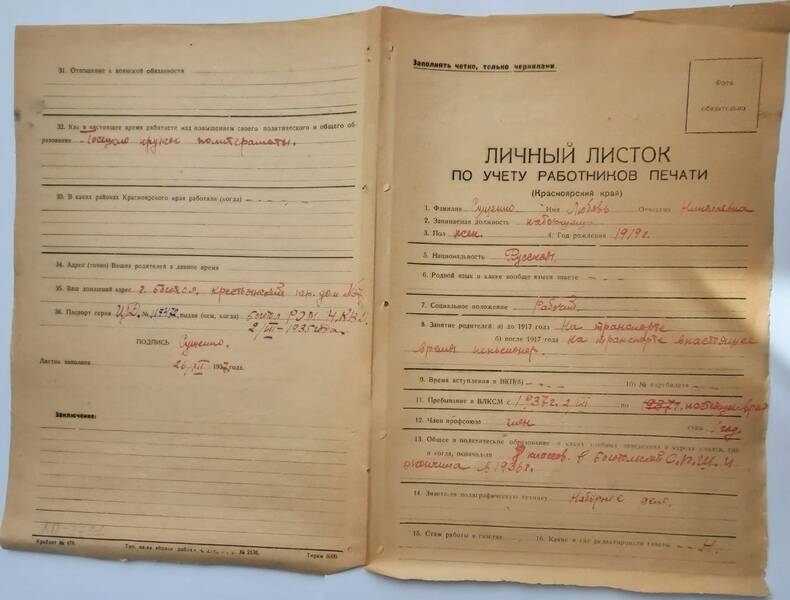 31. Отношение к воинской обязанности
32. Как в настоящее время работаете над повышением своего политического и общего об-
разования Посещаю кружок политграмоты.
33. В каких районах Красноярского края работали (когда)
34. Адрес (точно) Ваших родителей в данное время
35. Ваш домашний адрес г. Боготол, крестьянский дом №
36. Паспорт серия № выдан (кем, когда) РОМ НКВД
1935 года.
ПОДПИСЬ
Листок заполнен 26 VII 1937 года.
Заключение:
Крайлит № 479. № 2130. Тираж 5000.
Заполнять четко, только чернилами
Фото
обязательно
ЛИЧНЫЙ ЛИСТОК
ПО УЧЕТУ РАБОТНИКОВ ПЕЧАТИ
(Красноярский край)
1. Фамилия Имя Любовь Отчество Николаевна
2. Занимаемая должность наборщица
3. Пол жен. 4. Год рождения 1919 г.
5. Национальность Русская
6. Родной язык и какие вообще языки знаете
7. Социальное положение Рабочий
8. Занятие родителей: а) до 1917 года На транспорте
б) после 1917 года на транспорте в настоящее
время пенсионер.
9. Время вступления в ВКП(б) 10) № партбилета
11. Пребывание в ВЛКСМ с 1937 г. по
12. Член профсоюза член стаж 1 год
13. Общее и политическое образование в каких учебных заведениях и курсах учились, где
и когда, окончили 7 классов в Боготольской
окончила в 1936 г.
14. Знаете ли полиграфическую технику Наборное дело.
15. Стаж работы в газетах 16. Какие и где редактировали газеты